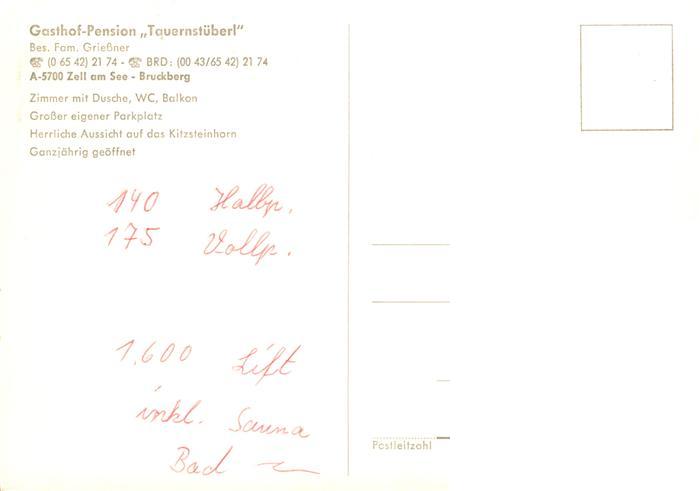 Gasthof-Pension „Tauernstüberl“
Bes. Fam. Grießner
☎ (0 65 42) 21 74 - ☎ BRD: (00 43/65 42) 21 74
A-5700 Zell am See - Bruckberg
Zimmer mit Dusche, WC, Balkon
Großer eigener Parkplatz
Herrliche Aussicht auf das Kitzsteinhorn
Ganzjährig geöffnet
140 Halbp.
175 Vollp.
1.600 Lift
inkl. Sauna
Bad
Postleitzahl